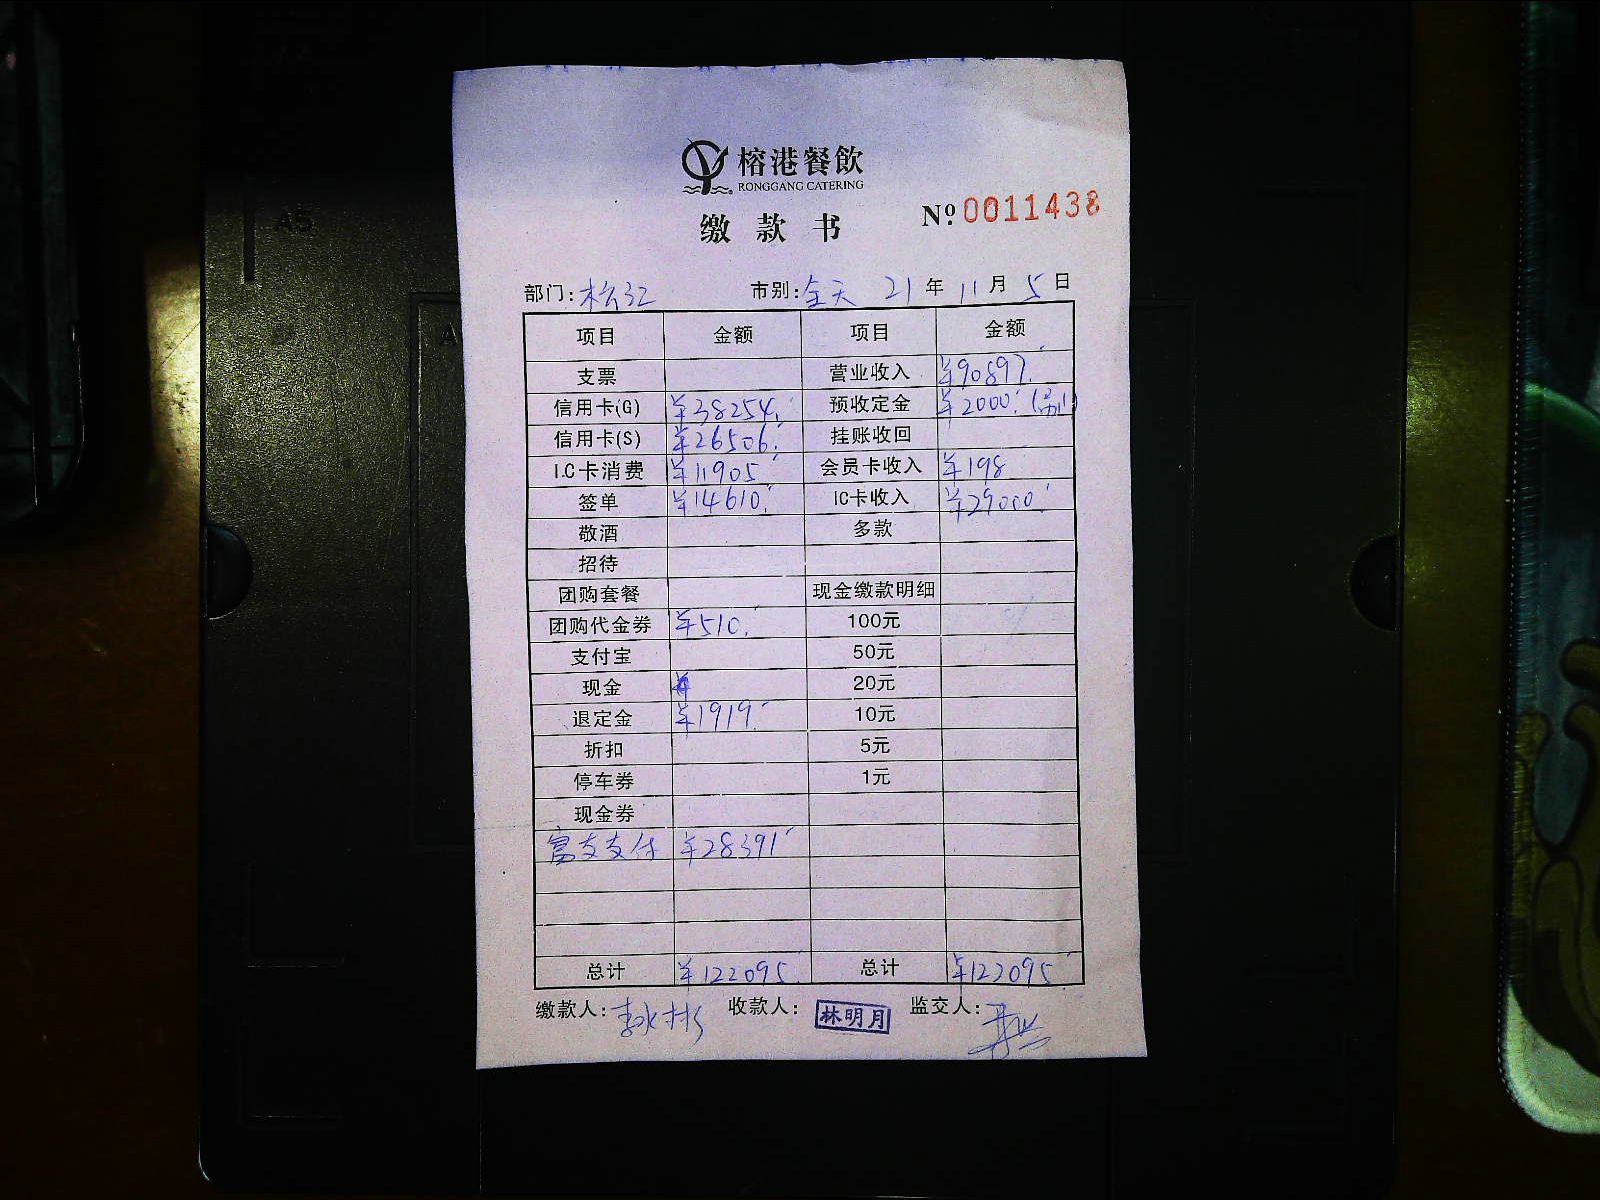 榕港餐飲
RONGGANG CATERING
缴款书 Nº 0011438
部门: 松江 市别: 全天 21 年 11 月 5 日
项目 金额 项目 金额
支票 营业收入 ¥90897.
信用卡(G) ¥38254. 预收定金 ¥2000.
信用卡(S) ¥26506. 挂账收回
I.C卡消费 ¥11905 会员卡收入 ¥198
签单 ¥14610. IC卡收入 ¥29000.
敬酒 多款
招待
团购套餐 现金缴款明细
团购代金券 ¥510. 100元
支付宝 50元
现金 ¥ 20元
退定金 ¥1919. 10元
折扣 5元
停车券 1元
现金券
富友支付 ¥28391
总计 ¥122095. 总计 ¥122095.
缴款人: 李冰彬 收款人: 林明月 监交人: